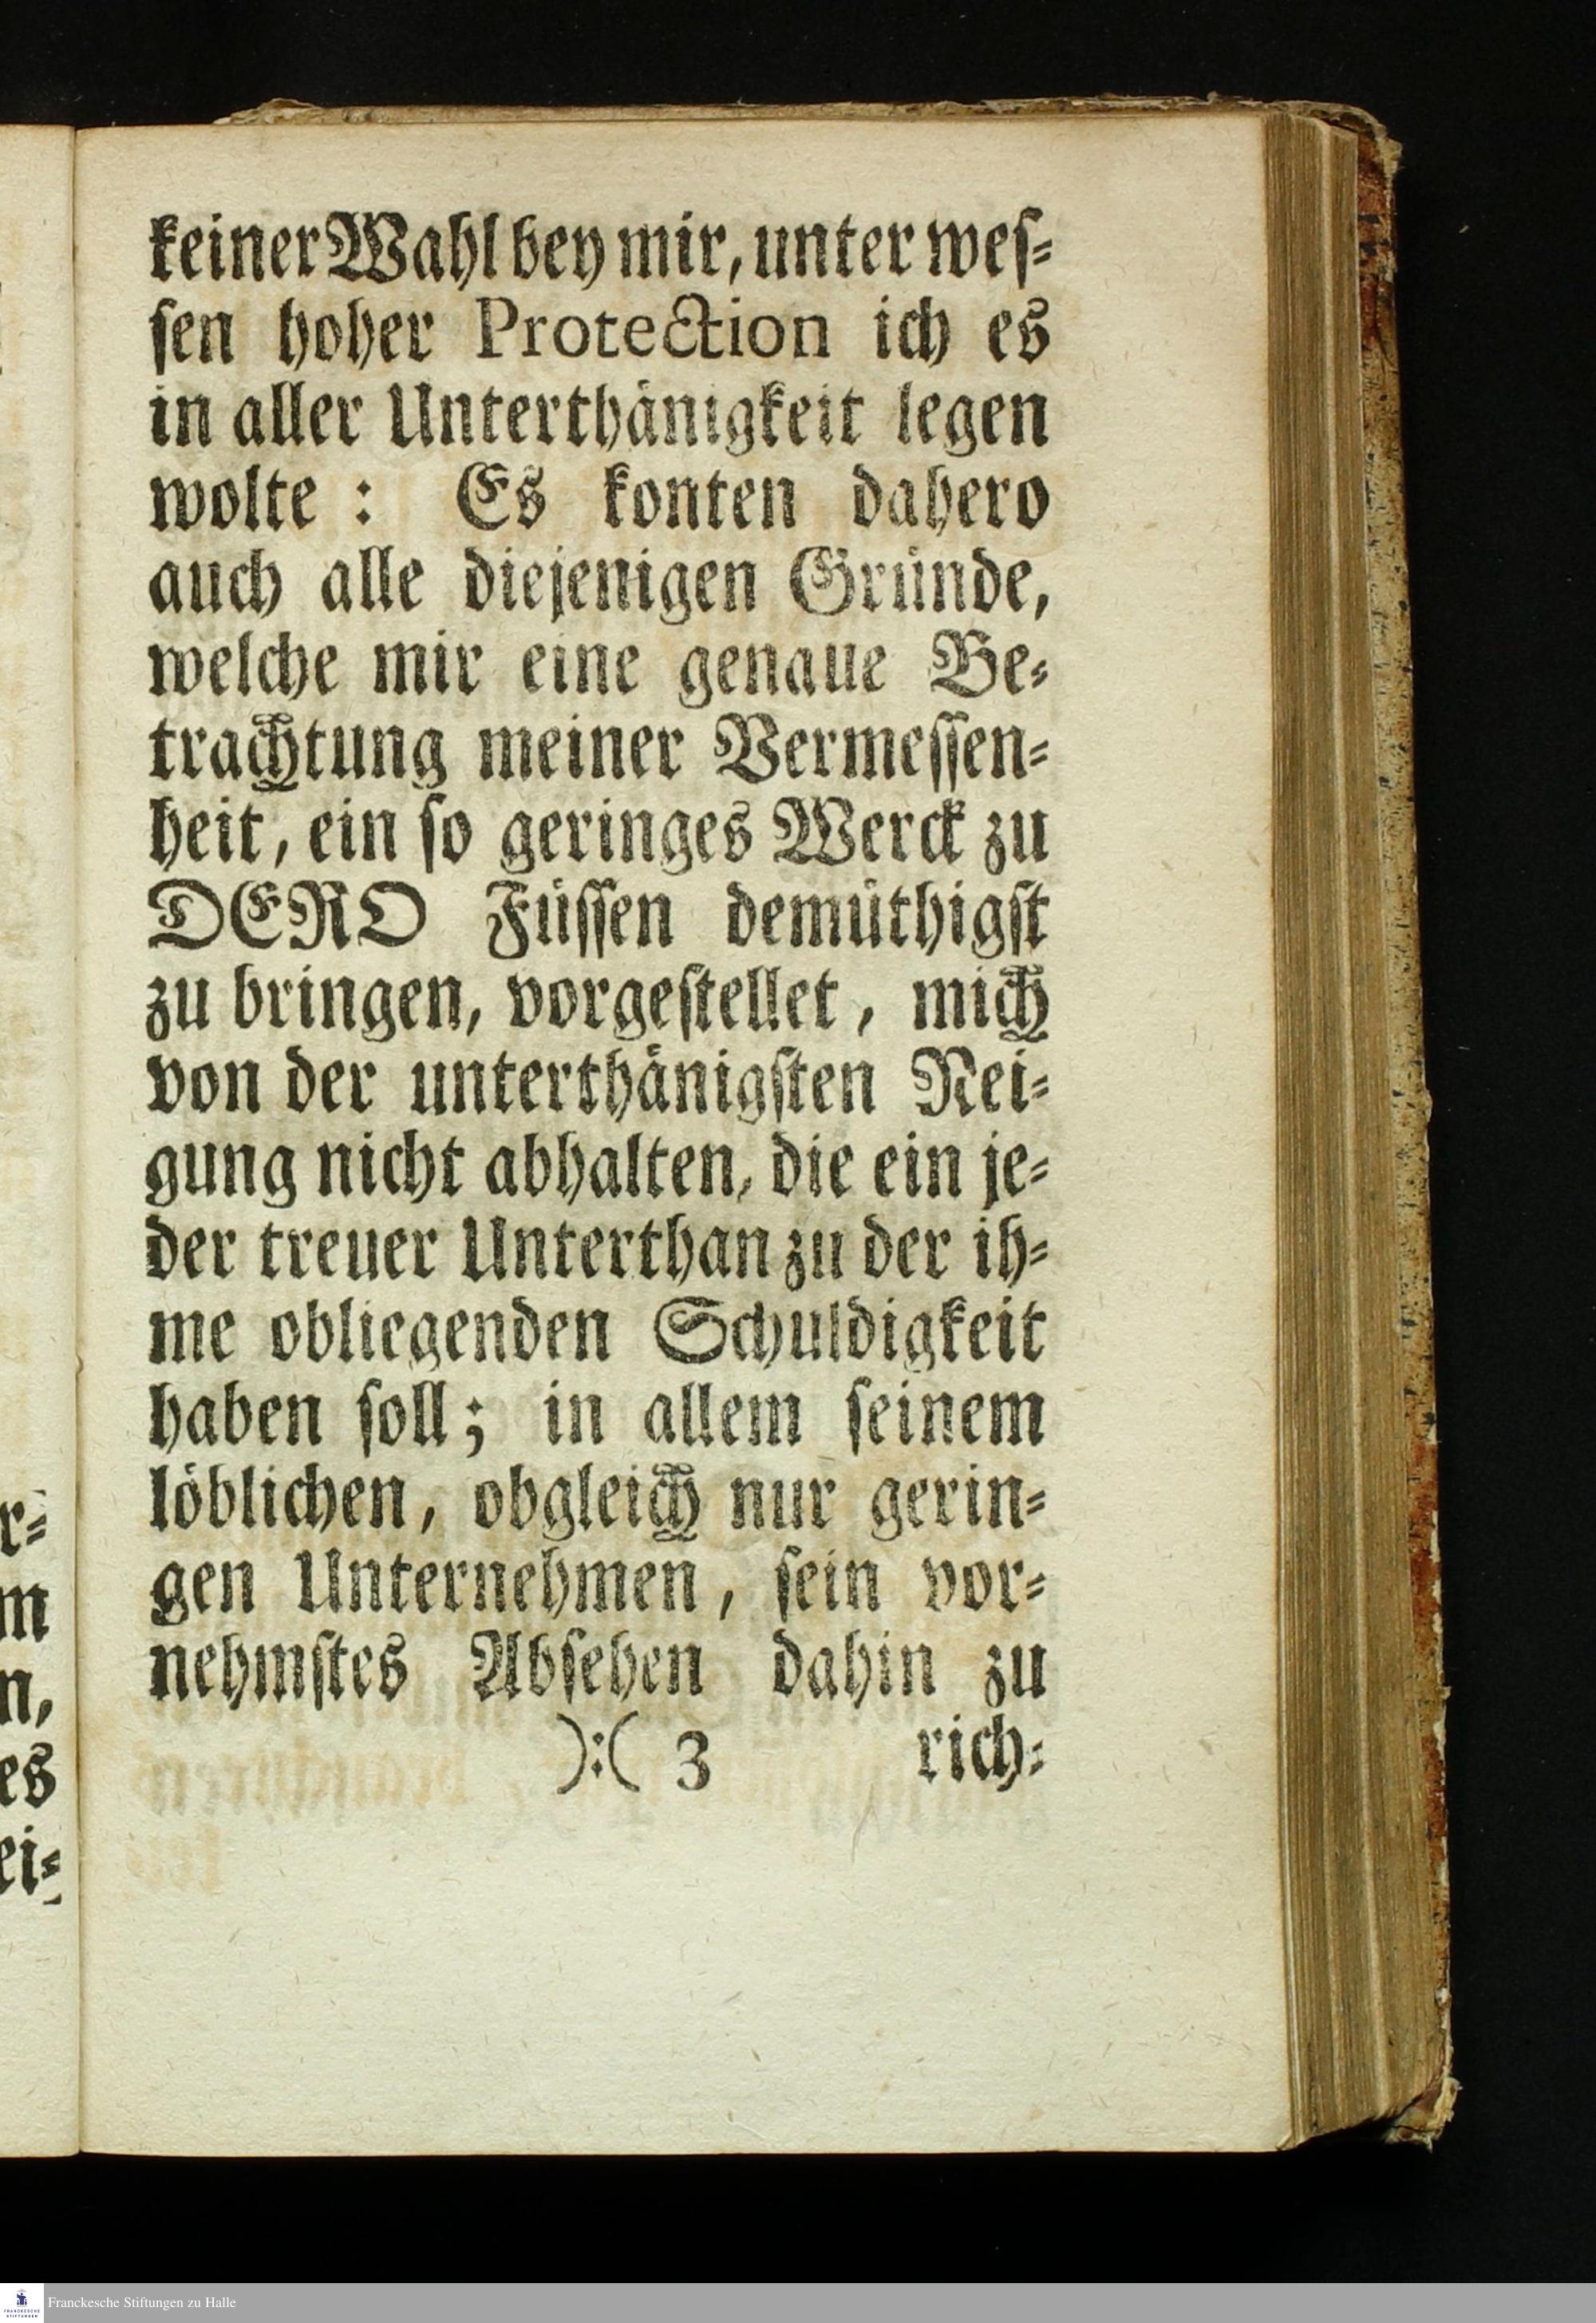 keiner Wahl bey mir, unter weſ⸗
ſen hoher Protection ich es
in aller Unterthaͤnigkeit legen
wolte : Es konten dahero
auch alle diejenigen Gruͤnde,
welche mir eine genaue Be⸗
trachtung meiner Vermeſſen⸗
heit, ein ſo geringes Werck zu
DERO Fuͤſſen demuͤthigſt
zu bringen, vorgeſtellet, mich
von der unterthaͤnigſten Nei⸗
gung nicht abhalten, die ein je⸗
der treuer Unterthan zu der ih⸗
me obliegenden Schuldigkeit
haben ſoll; in allem ſeinem
loͤblichen, obgleich nur gerin⸗
gen Unternehmen, ſein vor⸗
nehmſtes Abſehen dahin zu
):( 3 rich⸗
r⸗
m
n,
es
ei⸗
Franckesche Stiftungen zu Halle
FRANCKESCHE
STIFTUNGEN